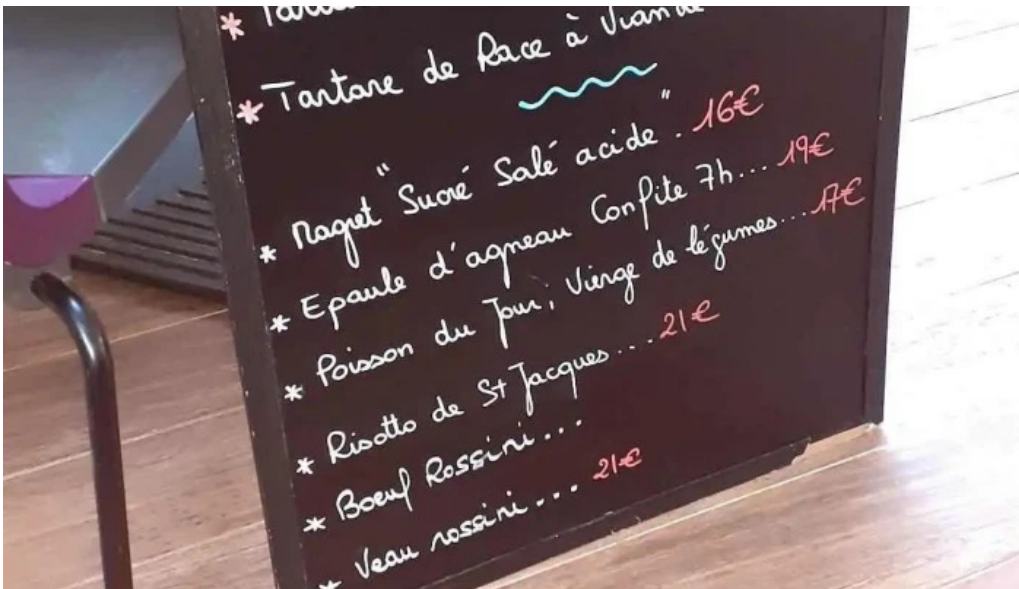 * Tartare de Race à Viande
* Magret "Sucré Salé acide". 16€
* Epaule d'agneau Confite 7h... 19€
* Poisson du Jour, Vierge de légumes... 17€
* Risotto de St Jacques.... 21€
* Boeuf Rossini...
* Veau rossini... 21€